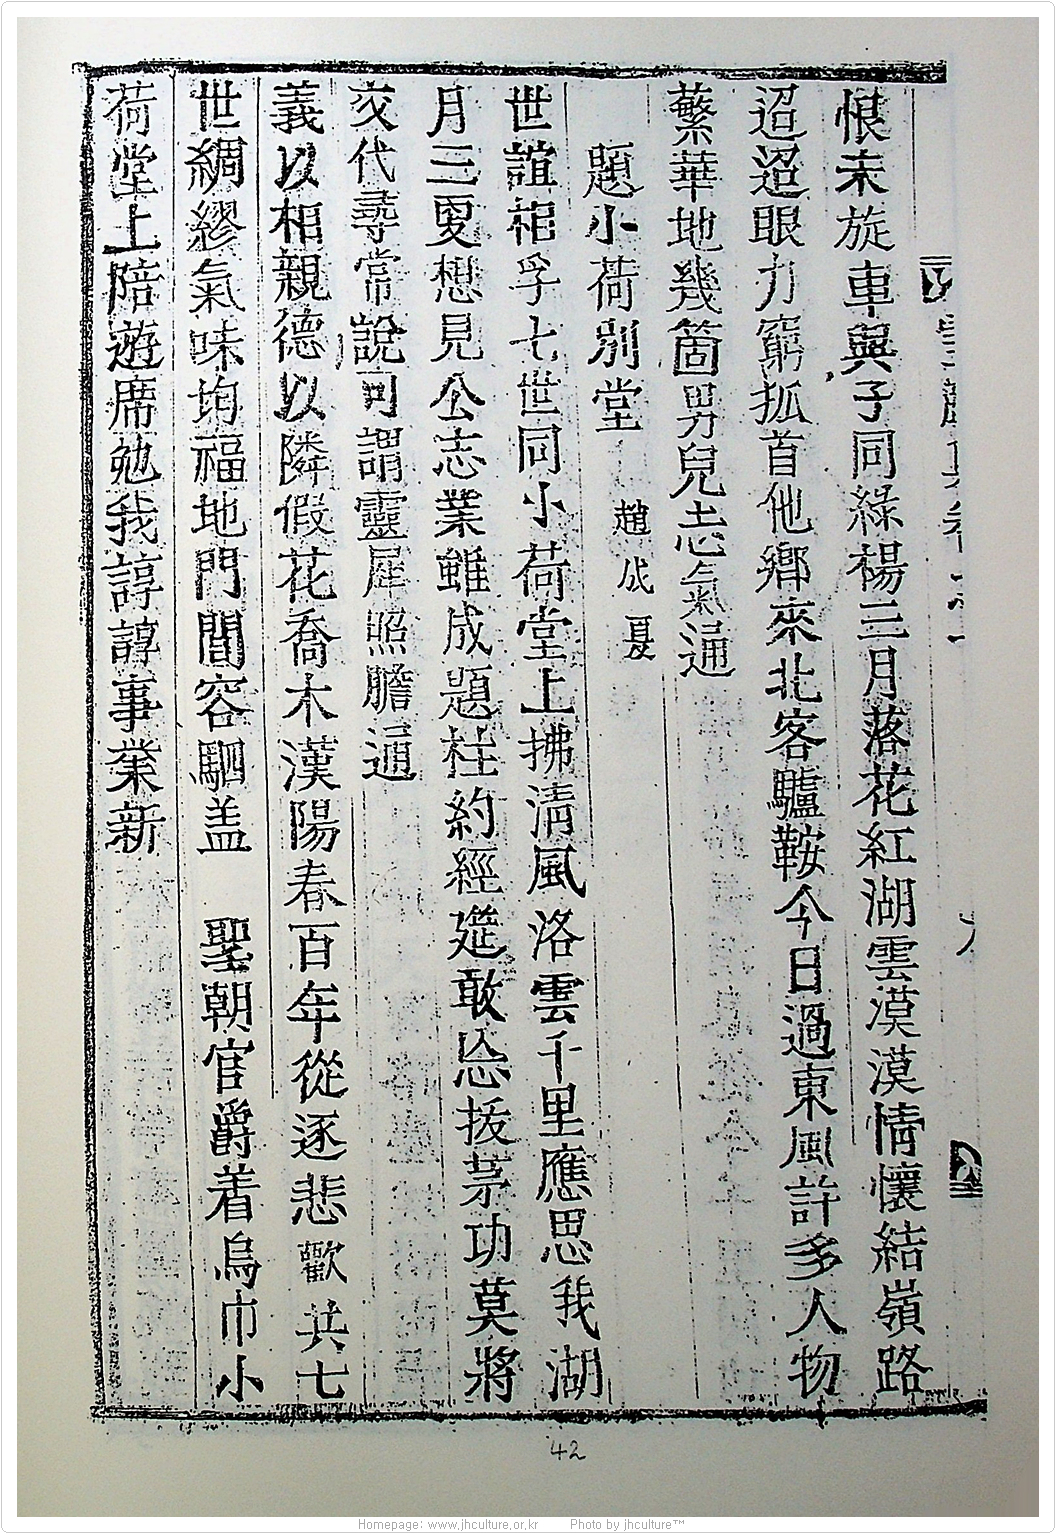 恨未旋車與子同綠楊三月落花紅湖雲漠漠情懷結嶺路
迢迢眼力窮狐首他鄉來北客驢鞍今日過東風許多人物
繁華地幾箇男兒志氣通
題小荷別堂 趙 夏
世誼相孚七世同小荷堂上拂淸風洛雲千里應思我湖
月三更想見公志業雖成題柱約經筵敢忘拔茅功莫將
交代尋常說可謂靈犀照膽通
義以相親德以隣假花喬木漢陽春百年從逐悲歡共七
世綢繆氣味均福地門閭容駟盖 聖朝官爵着烏巾小
荷堂上陪遊席勉我諄諄事業新
42
Homepage: www.jhculture.or.kr Photo by jhculture™